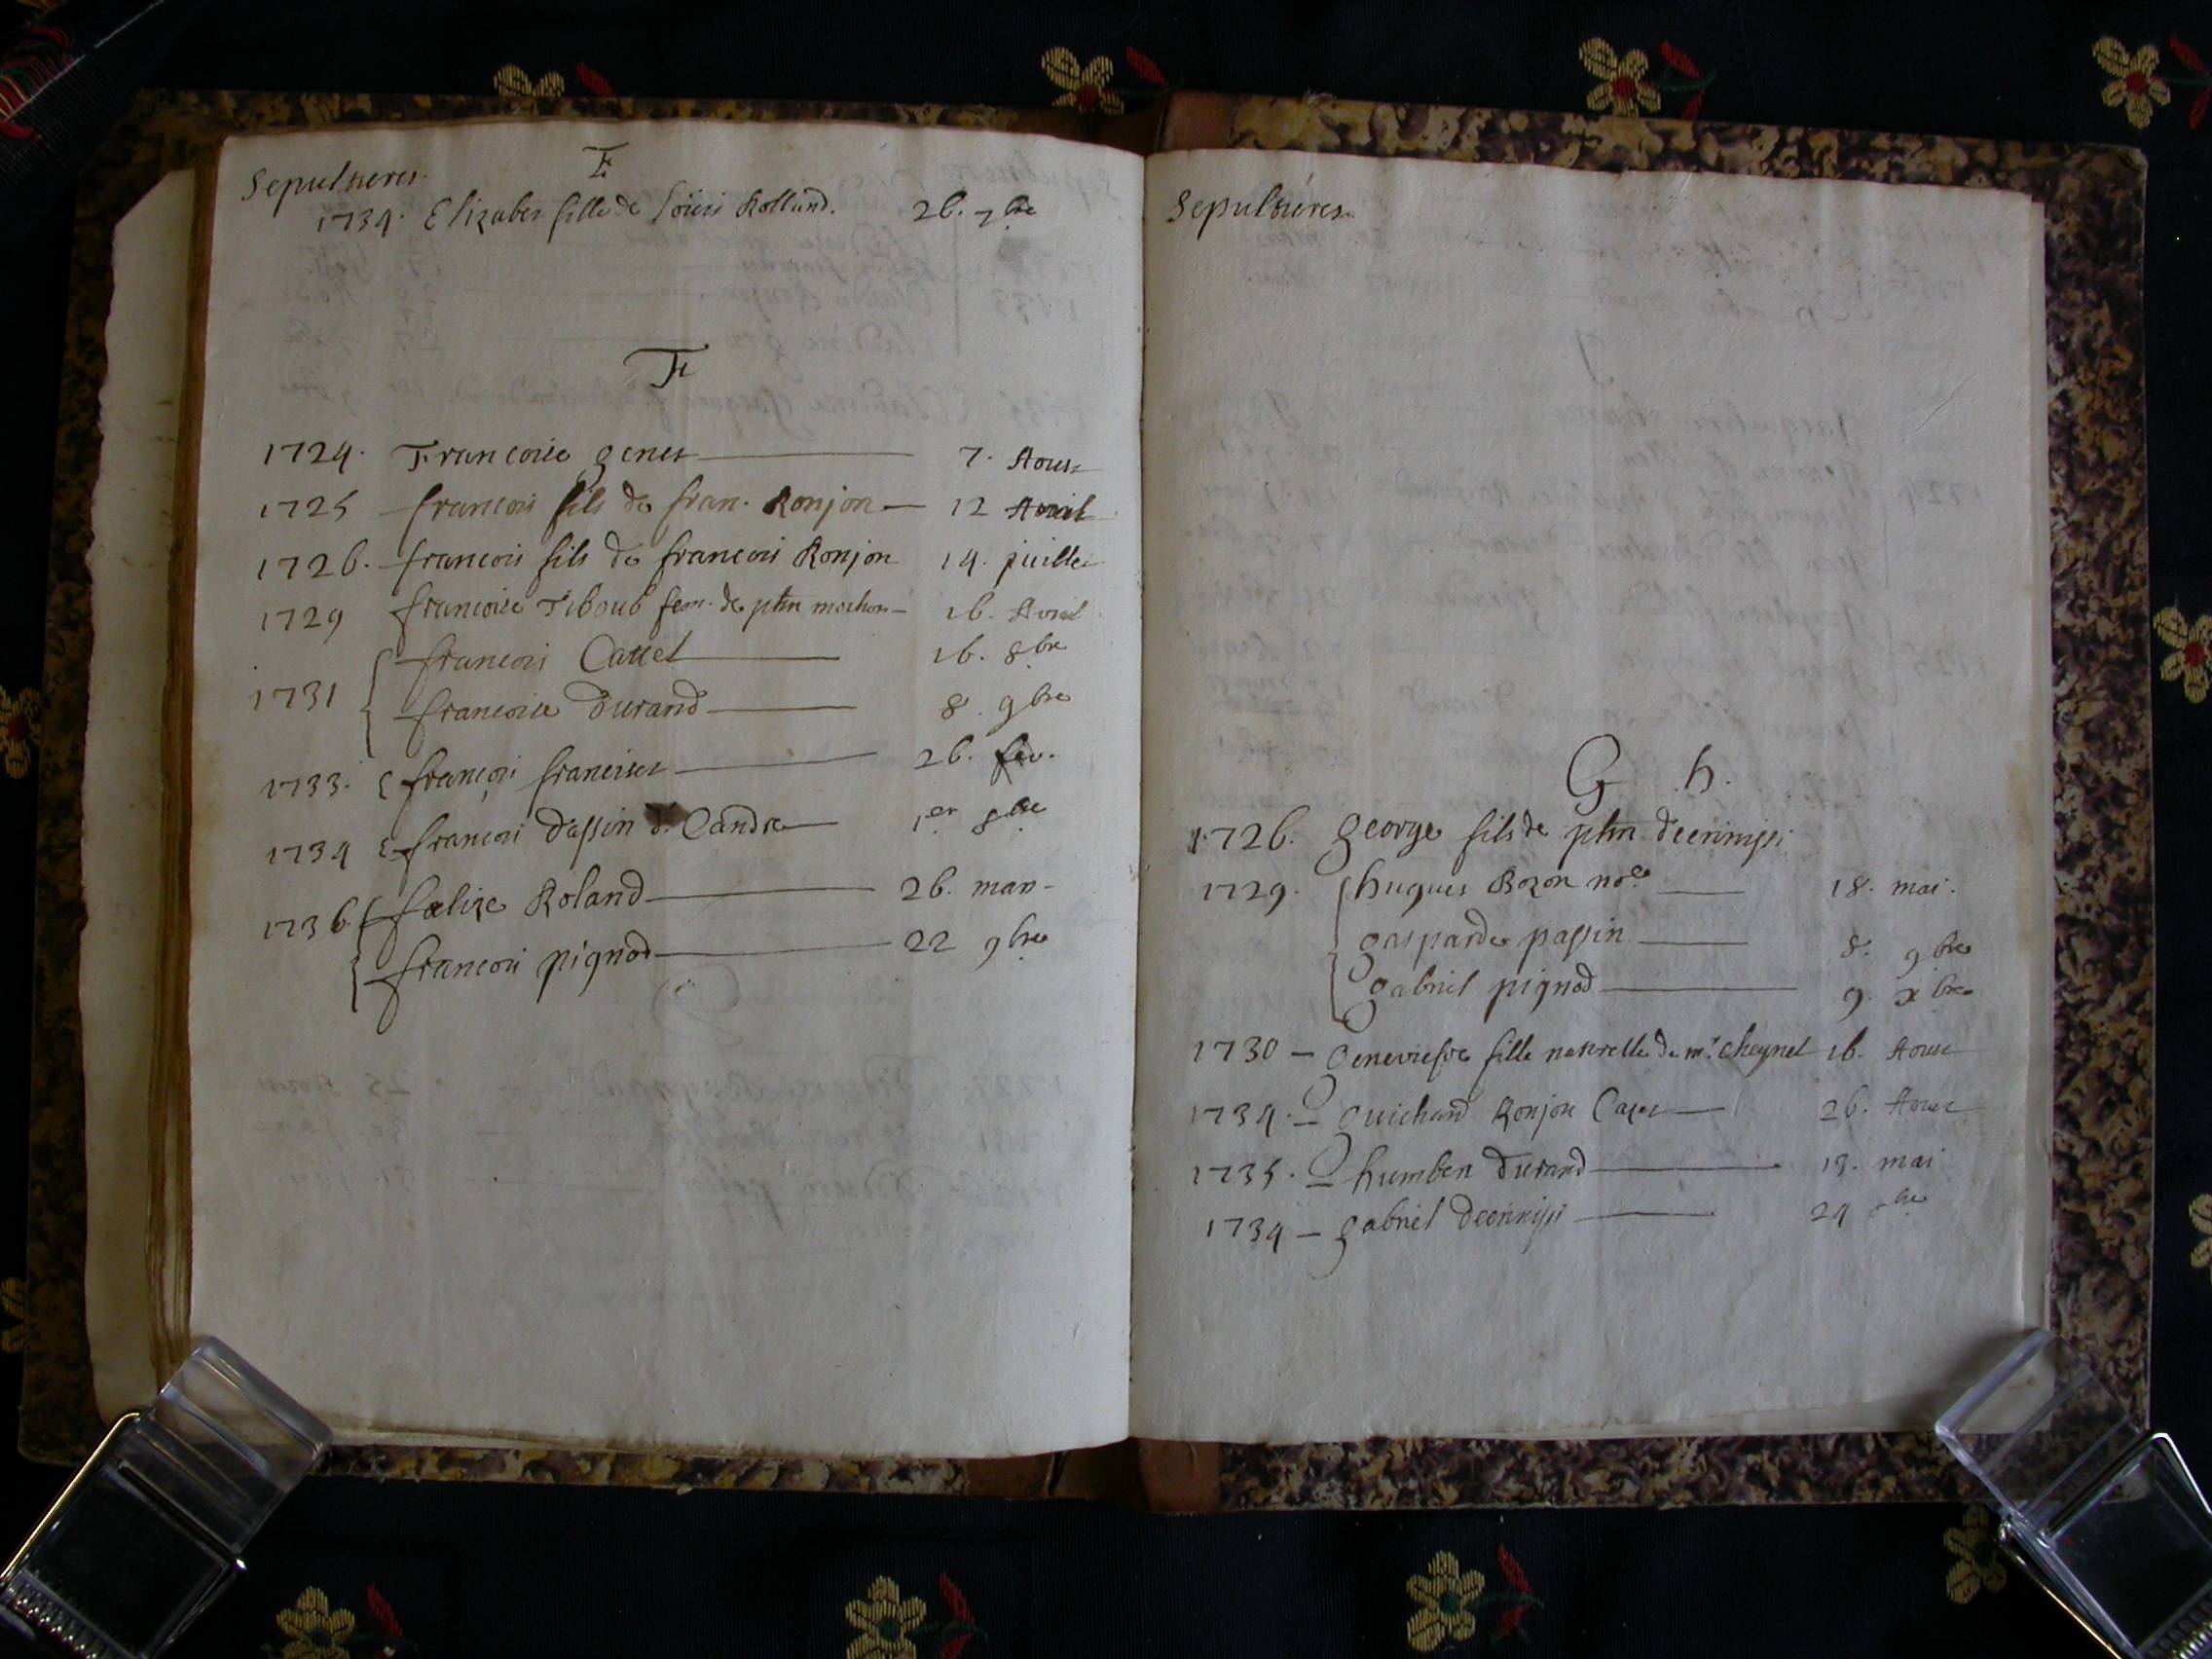 Sepultures.
E
1734. Elizabet fille de Loüis Rolland. 26. 7bre
F
1724. Francoise genet 7. Aoust
1725 francois fils de fran. Ronjon 12 Avril
1726. francois fils de francois Ronjon 14. juillet
1729 francoise Tiboud fem. de phn mochon 16. Avril
1731 francois Cattel 16. 8bre
francoise Durand 8. 9bre
1733. françois 26. fev.
1734 françois Dassin d. Candre 1er 8bre
1736. felize Roland 26. mars
francois pignod 22 9bre
Sepultures.
G h.
1726. george fils de phn decrinissi
1729. hugues Bozon nore 18. mai.
gasparde passin 8. 9bre
gabriel pignod 9. xbre
1730 — Geneviefve fille naturelle de mr cheynel 16. Aoust
1734. — Guichard Ronjon Cazet 26. Aoust
1735. — humbert Durand 13. mai
1734 — gabriel decrinissi 24